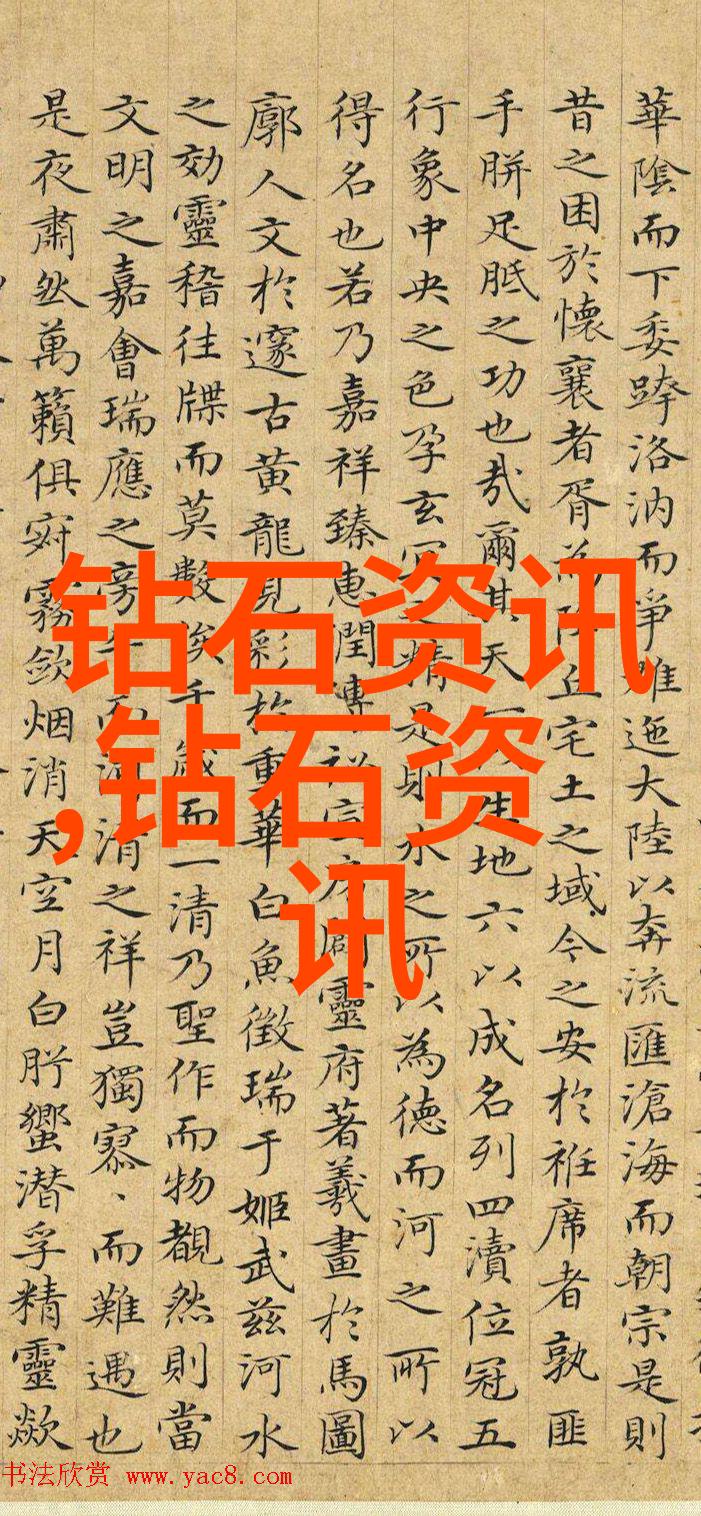 華陰而下委跨洛汭而爭雄迤大陸以奔流匯滄海而朝宗是則
昔之困於懷襄者胥為降丘宅土之域今之安於袵席者孰匪
手胼足胝之功也哉爾其天生地六以成名列四瀆位冠五
行象中央之色孕玄冥之精是則水之所以為德而河之所以
得名也若乃嘉祥臻惠潤闢靈府著羲畫於馬圖
廓人文於邃古黃龍見彩於重華白魚徵瑞于姬武茲河水
之効靈稽往牒而莫數俟千歲而一清乃聖作而物覩然則當
文明之嘉會瑞應之旁午而河清之祥豈獨寥、而難遇也
是夜肅然萬籟俱寂霧斂烟消天空月白肸蠁潜孚精靈歘
钻石资讯
,钻石资
讯
书法欣赏 www.yac8.com